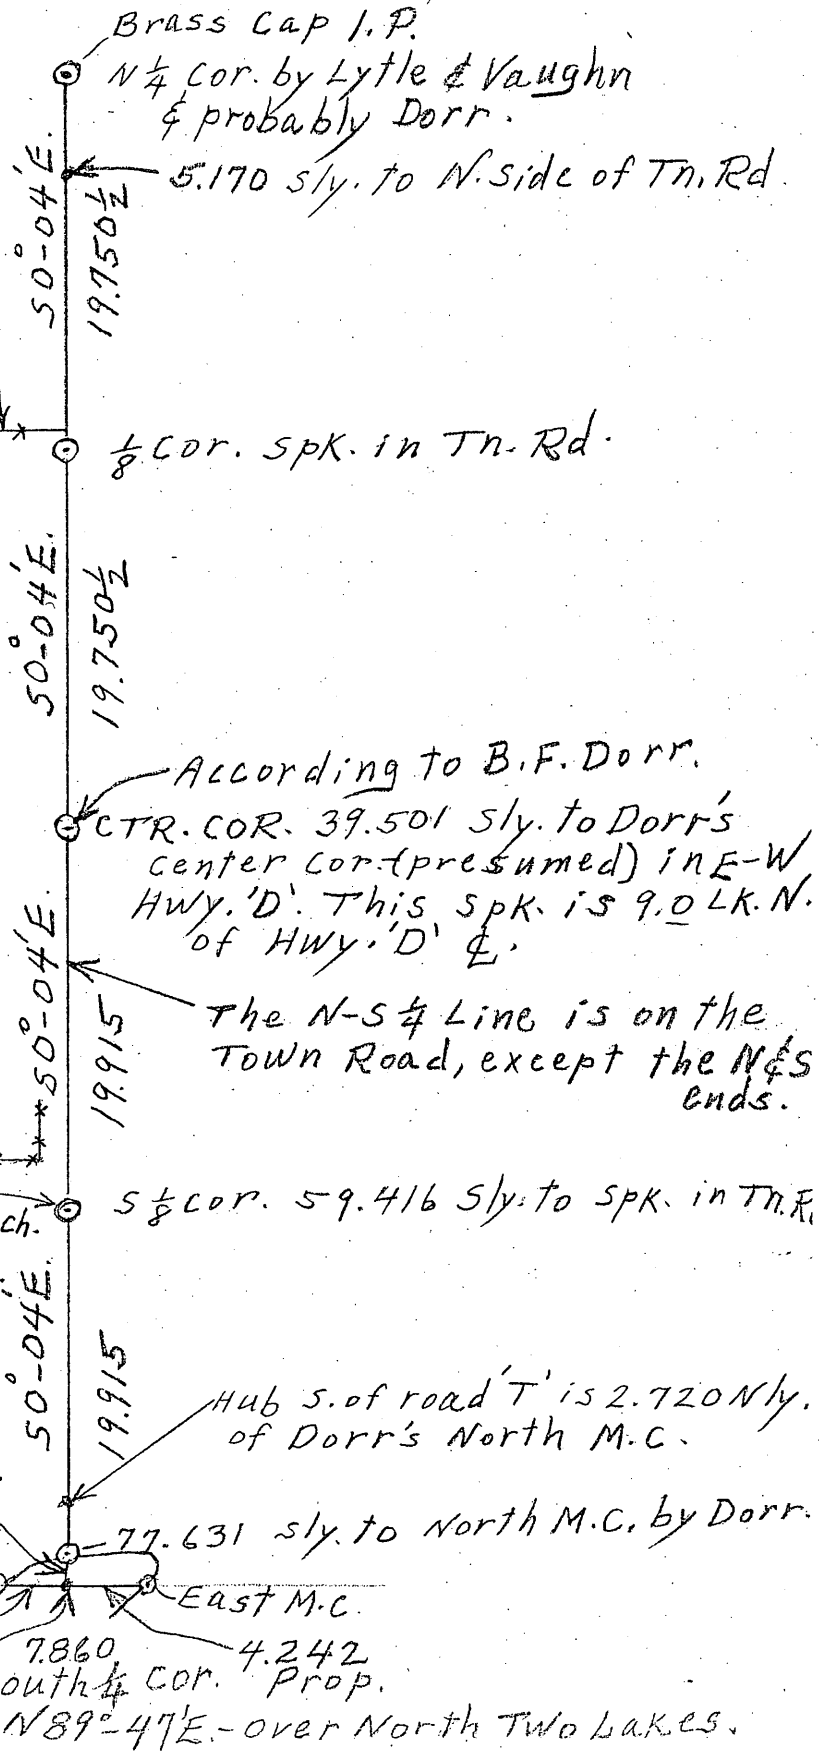 Brass Cap I.P.
N 1/4 Cor. by Lytle & Vaughn
& probably Dorr.
S0°-04'E.
5.170 Sly. to N. side of Tn. Rd.
19.750 1/2
1/8 Cor. Spk. in Tn. Rd.
S0°-04'E.
19.750 1/2
According to B.F. Dorr.
CTR. COR. 39.501 Sly. to Dorr's
Center Cor. (presumed) in E-W
Hwy. 'D'. This Spk. is 9.0 Lk. N.
of Hwy. 'D' ℄.
S0°-04'E.
The N-S 1/4 Line is on the
Town Road, except the N & S
ends.
19.915
S 1/8 cor. 59.416 Sly. to Spk. in Tn. R.
ch.
S0°-04'E.
19.915
Hub S. of road 'T' is 2.720 Nly.
of Dorr's North M.C.
77.631 Sly. to North M.C. by Dorr.
East M.C.
7.860 4.242
outh 1/4 Cor. Prop.
N89°-47'E.-over North Two Lakes.